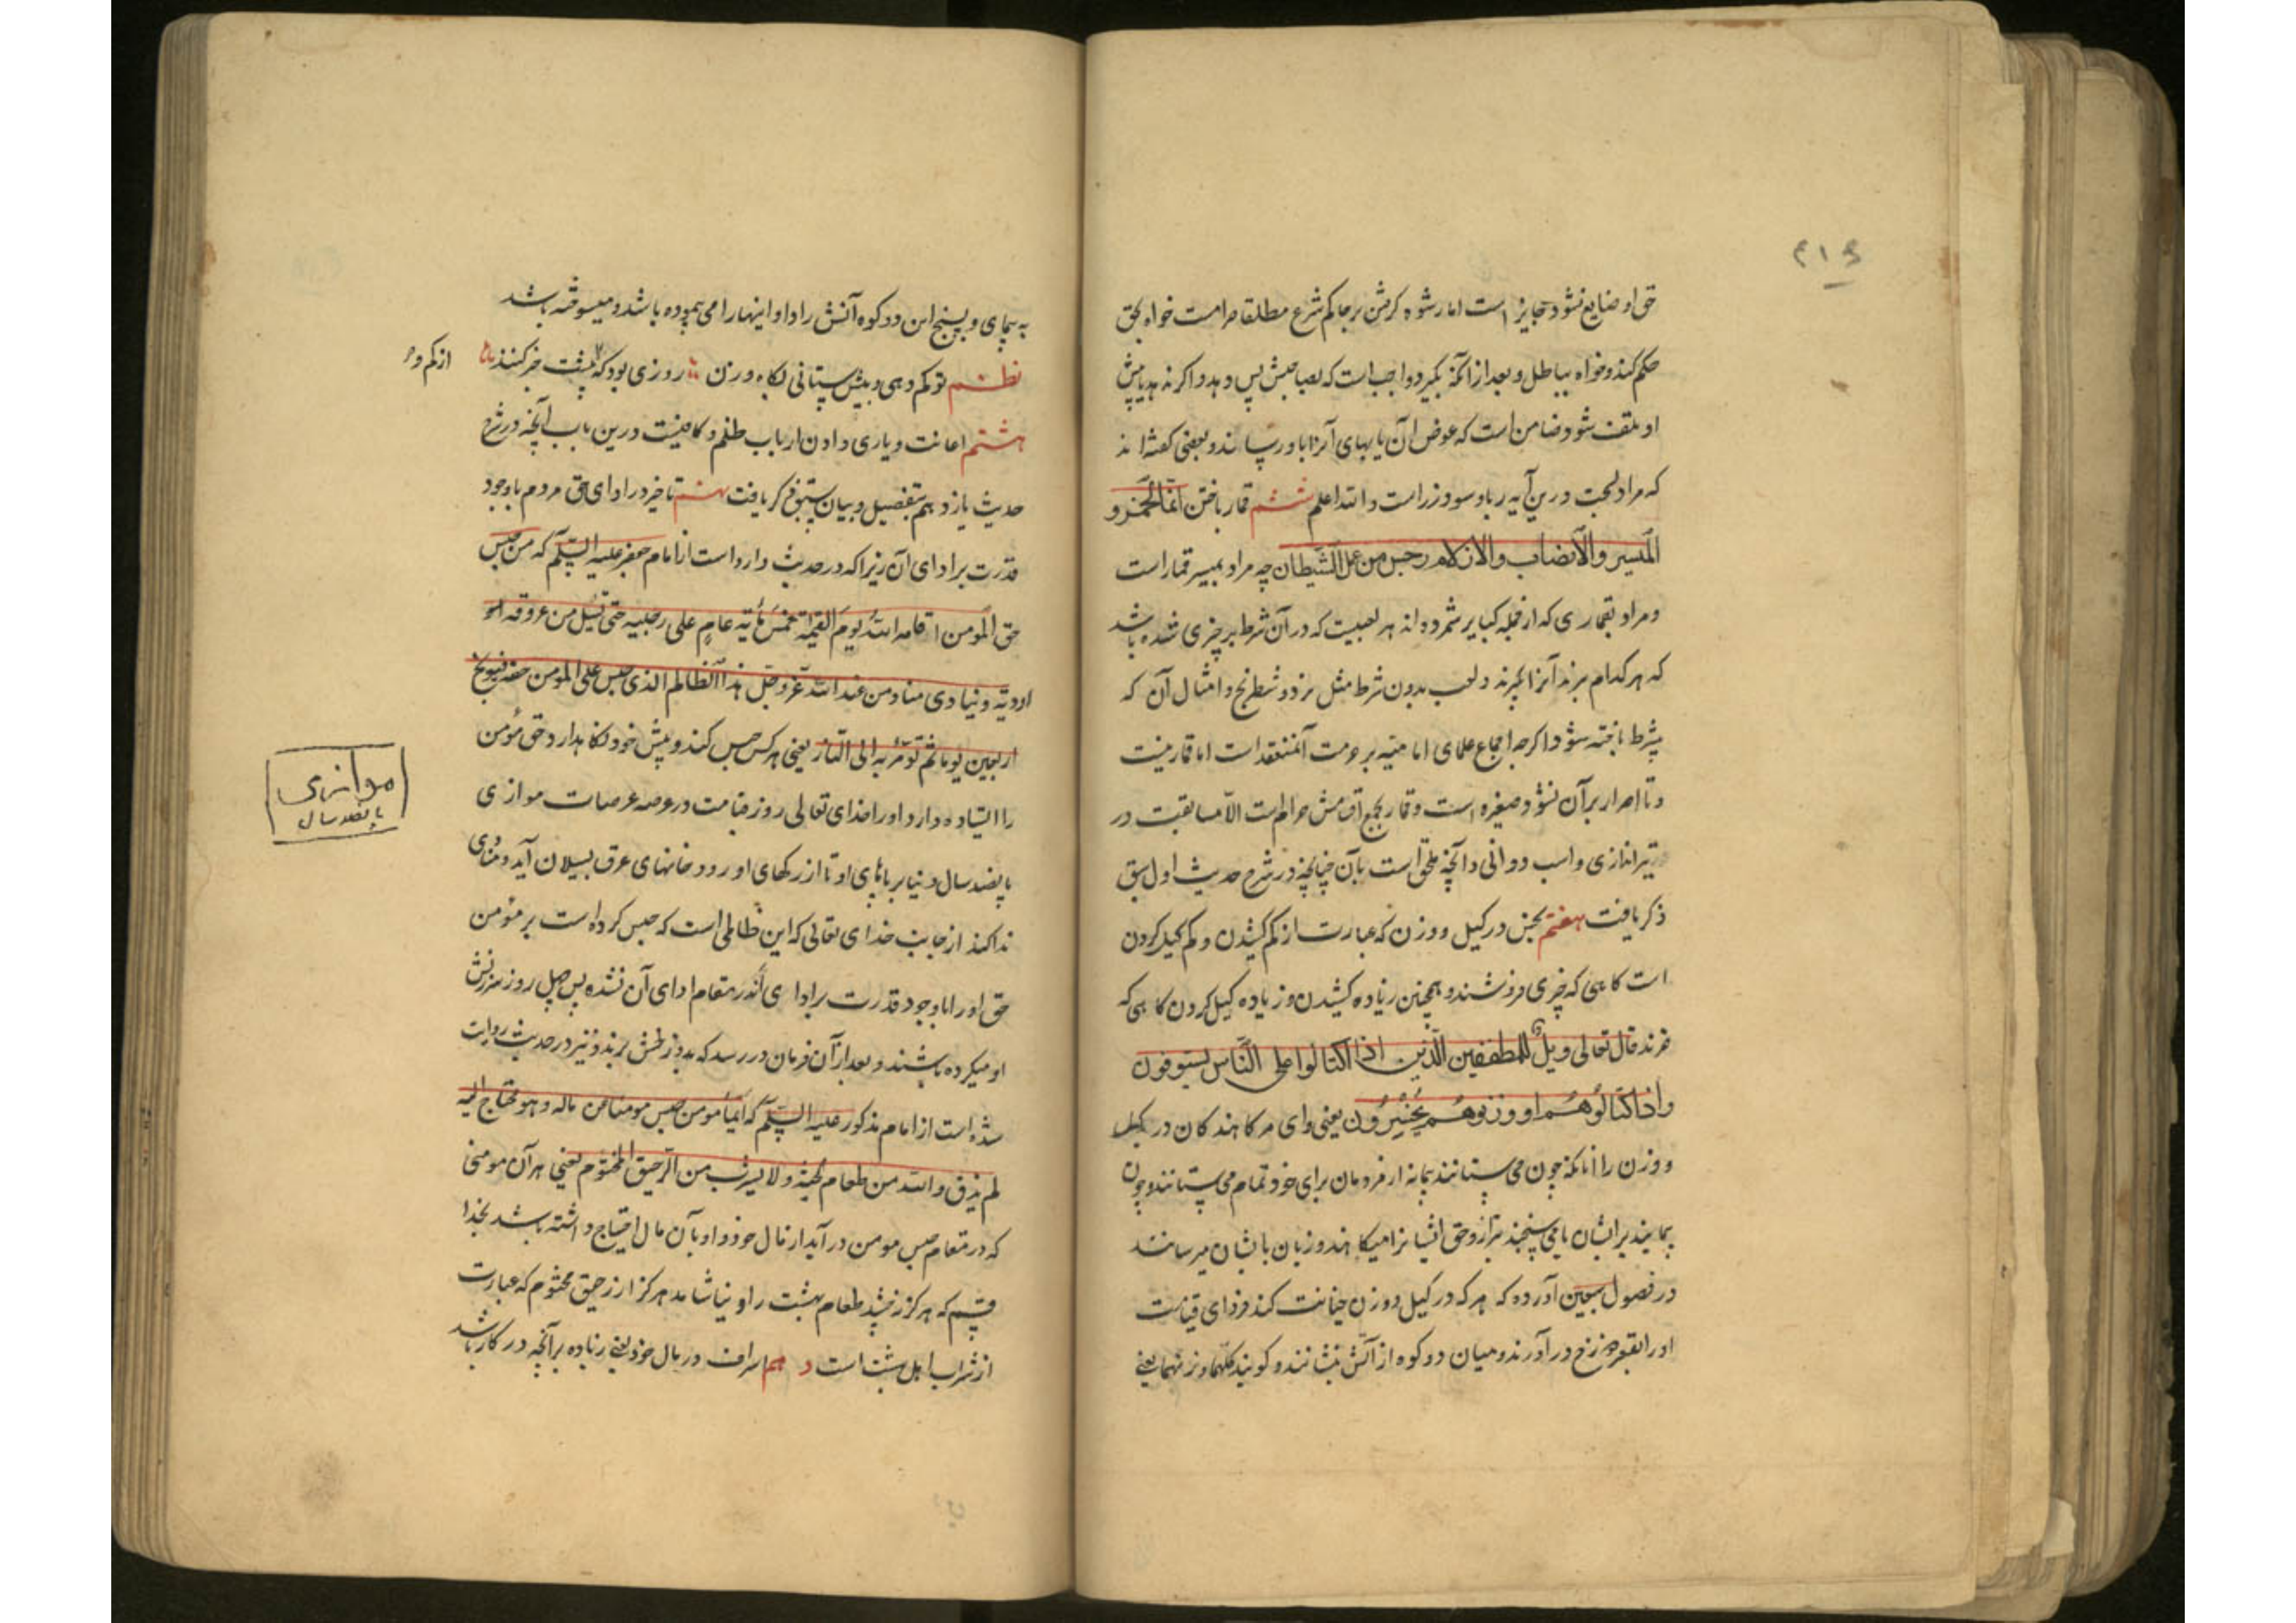 ۲۱۶
حق او ضایع نشود جایز است اما رشوه گرفتن بر حاکم شرع مطلقا حرامست خواه بحق
حکم کند و خواه بباطل و بعد از آنکه بگیرد واجب است که بصاحبش پس دهد و اگر نه پیش
او تلف شود ضامن است که عوض آن یا بهای آنرا باو رساند و بعضی گفته اند
که مراد درین آیه ربا و سود زر است والله اعلم ششم قمار باختن انما الخمر و
المیسر والانصاب والازلام رجس من عمل الشیطان چه مراد بمیسر قمار است
و مراد بقماری که از جمله کبایر شمرده اند هر لعبیست که در آن شرط بر چیزی شده باشد
که هر کدام برند آنرا گیرند و لعب بدون شرط مثل نرد و شطرنج و امثال آن که
بشرط باخته شود اگرچه اجماع علمای امامیه بر حرمت آن منعقد است اما قمار نیست
و تا اصرار بر آن نشود صغیره است و قمار بجمیع اقسامش حرام است الا مسابقت در
تیراندازی و اسب دوانی و آنچه ملحق است بآن چنانچه در شرح حدیث اول سبق
ذکر یافت هفتم بخس در کیل و وزن که عبارت از کم کشیدن و کم کیل کردن
است گاهی که چیزی فروشند و همچنین زیاده کشیدن و زیاده کیل کردن گاهی که
خرند قال تعالی ویل للمطففین الذین اذا اکتالوا علی الناس یستوفون
واذا کالوهم او وزنوهم یخسرون یعنی وای مر کاهندگان در کیل
و وزن را آنانکه چون می ستانند پیمانه از مردمان برای خود تمام می ستانند و چون
پیمایند برایشان یا می سنجند بترازو حق ایشانرا میکاهند و زیان بایشان میرسانند
در فصول سبعین آورده که هر که در کیل و وزن خیانت کند فردای قیامت
او را بقعر دوزخ در آورند و میان دو کوه از آتش بنشانند و گویند کلهما وزنهما یعنی
به پیمای و بسنج این دو کوه آتش را و او اینها را می پیموده باشد و میسوخته باشد
نظم تو کم دهی و بیش ستانی بکیل و وزن روزی بود که از کم و بیشت خبر کنند
از کم و
هشتم اعانت و یاری دادن ارباب ظلم و کافیست درین باب آنچه در شرح
حدیث یازدهم بتفصیل و بیان سبق ذکر یافت نهم تاخیر در ادای حق مردم با وجود
قدرت بر ادای آن زیرا که در حدیث وارد است از امام جعفر علیه السلام که من حبس
حق المومن اقامه الله یوم القیمة خمس مائة عام علی رجلیه حتی تسیل من عروقه
اودیة و ینادی مناد من عند الله عز وجل هذا الظالم الذی حبس علی المومن حقه فیوبخ
اربعین یوما ثم تومر به الی النار یعنی هر کس حبس کند و پیش خود نگاهدارد حق مؤمن
را ایستاده دارد او را خدای تعالی روز قیامت در عرصه عرصات موازی
پانصد سال دنیا بر پاهای او تا از رگهای او رودخانهای عرق بسیلان آید و منادی
موازی
پانصد سال
ندا کند از جانب خدای تعالی که این ظالمی است که حبس کرده است بر مؤمن
حق او را با وجود قدرت بر ادای آن در مقام ادای آن نشده پس چهل روز سرزنش
او میکرده باشند و بعد از آن فرمان در رسد که بدوزخش برند و نیز در حدیث روایت
شده است از امام مذکور علیه السلام که ایما مومن حبس مومنا عن ماله و هو محتاج الیه
لم یذق والله من طعام الجنة ولا یشرب من الرحیق المختوم یعنی هر آن مومنی
که در مقام حبس مومن در آید از مال خود و او بآن مال احتیاج داشته باشد بخدا
قسم که هرگز نچشد طعام بهشت را و نیاشامد هرگز از رحیق مختوم که عبارت
از شراب اهل بهشت است دهم اسراف در مال خود یعنی زیاده بر آنچه در کار باشد